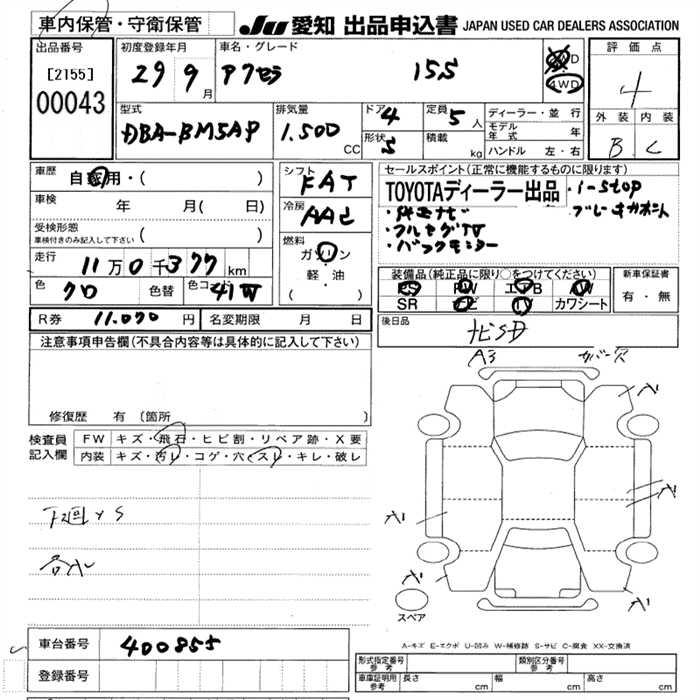 車内保管・守衛保管
JU 愛知 出品申込書 JAPAN USED CAR DEALERS ASSOCIATION
出品番号
[2155]
00043
初度登録年月
29 9月
車名・グレード
アクセラ 15S
4WD
評価点
4
外装 内装
B C
型式
DBA-BM5AP
排気量
1.500 CC
ドア 4
形状 S
定員 5人
積載 kg
ディーラー・並行
モデル年式 年
ハンドル 左・右
車歴
自家用・( )
車検 年 月( 日)
受検形態
車検付きのみ記入して下さい ( )
走行
11万0千377km
色 クロ 色替 色コード 41W
シフト FAT
冷房 AAC
燃料
ガソリン
軽・油
( )
セールスポイント(正常に機能するものに限ります)
TOYOTAディーラー出品 ・i-stop
・フルセグTV
・バックモニター
装備品(純正品に限り○をつけてください)
PS PW エアB AW
SR ナビ TV カワシート
新車保証書
有・無
R券 11.070円 名変期限 月 日
後日品
ナビSD
注意事項申告欄(不具合内容等は具体的に記入して下さい)
修復歴 有 (箇所
検査員記入欄
FW キズ・飛石・ヒビ割・リペア跡・X要
内装 キズ・汚レ・コゲ・穴・スレ・キレ・破レ
A3
カバー欠
下廻りS
スペア
A-キズ E-エクボ U-凹み W-補修跡 S-サビ C-腐食 XX-交換済
車台番号 400855
登録番号
形式指定番号 参考
類別区分番号 参考
車庫証明用 参考 長さ cm 幅 cm 高さ cm